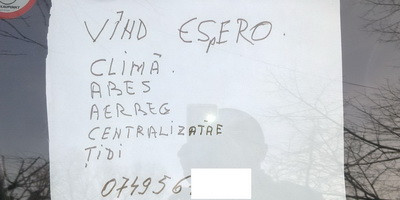 VÎND ESpERO.
CLIMĂ.
ABES
AERBEG
CENTRALIZATRE
ȚIDI
074956